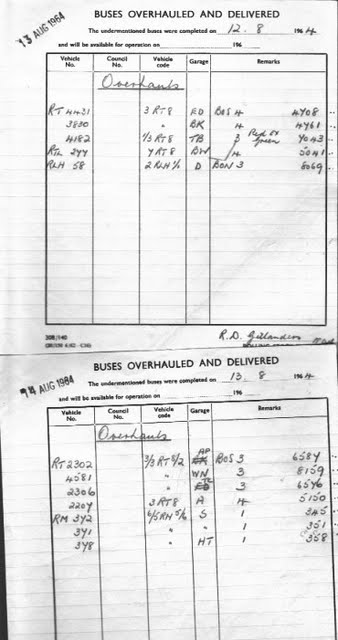 BUSES OVERHAULED AND DELIVERED
13 AUG 1964
The undermentioned buses were completed on 12.8 1964
and will be available for operation on 196
Vehicle No. Council No. Vehicle code Garage Remarks
Overhauls
RT 4421 3 RT8 ED BOS 4 4708
3830 " BK 4 4761
4182 1/3 RT8 TB 3 Red ex green 4043
RTL 277 7 RT8 BW 4 5041
RLH 58 2 RLH 1/1 D BON 3 8069
R.D. Gillanders
BUSES OVERHAULED AND DELIVERED
14 AUG 1964
The undermentioned buses were completed on 13.8 1964
and will be available for operation on 196
Vehicle No. Council No. Vehicle code Garage Remarks
Overhauls
RT 2302 3/3 RT8/2 AP BOS 3 6587
4581 " WN 3 8159
2306 " 3 6576
2207 3 RT8 A 4 5150
RM 342 S 1 345
341 " " 1 351
348 " HT 1 358